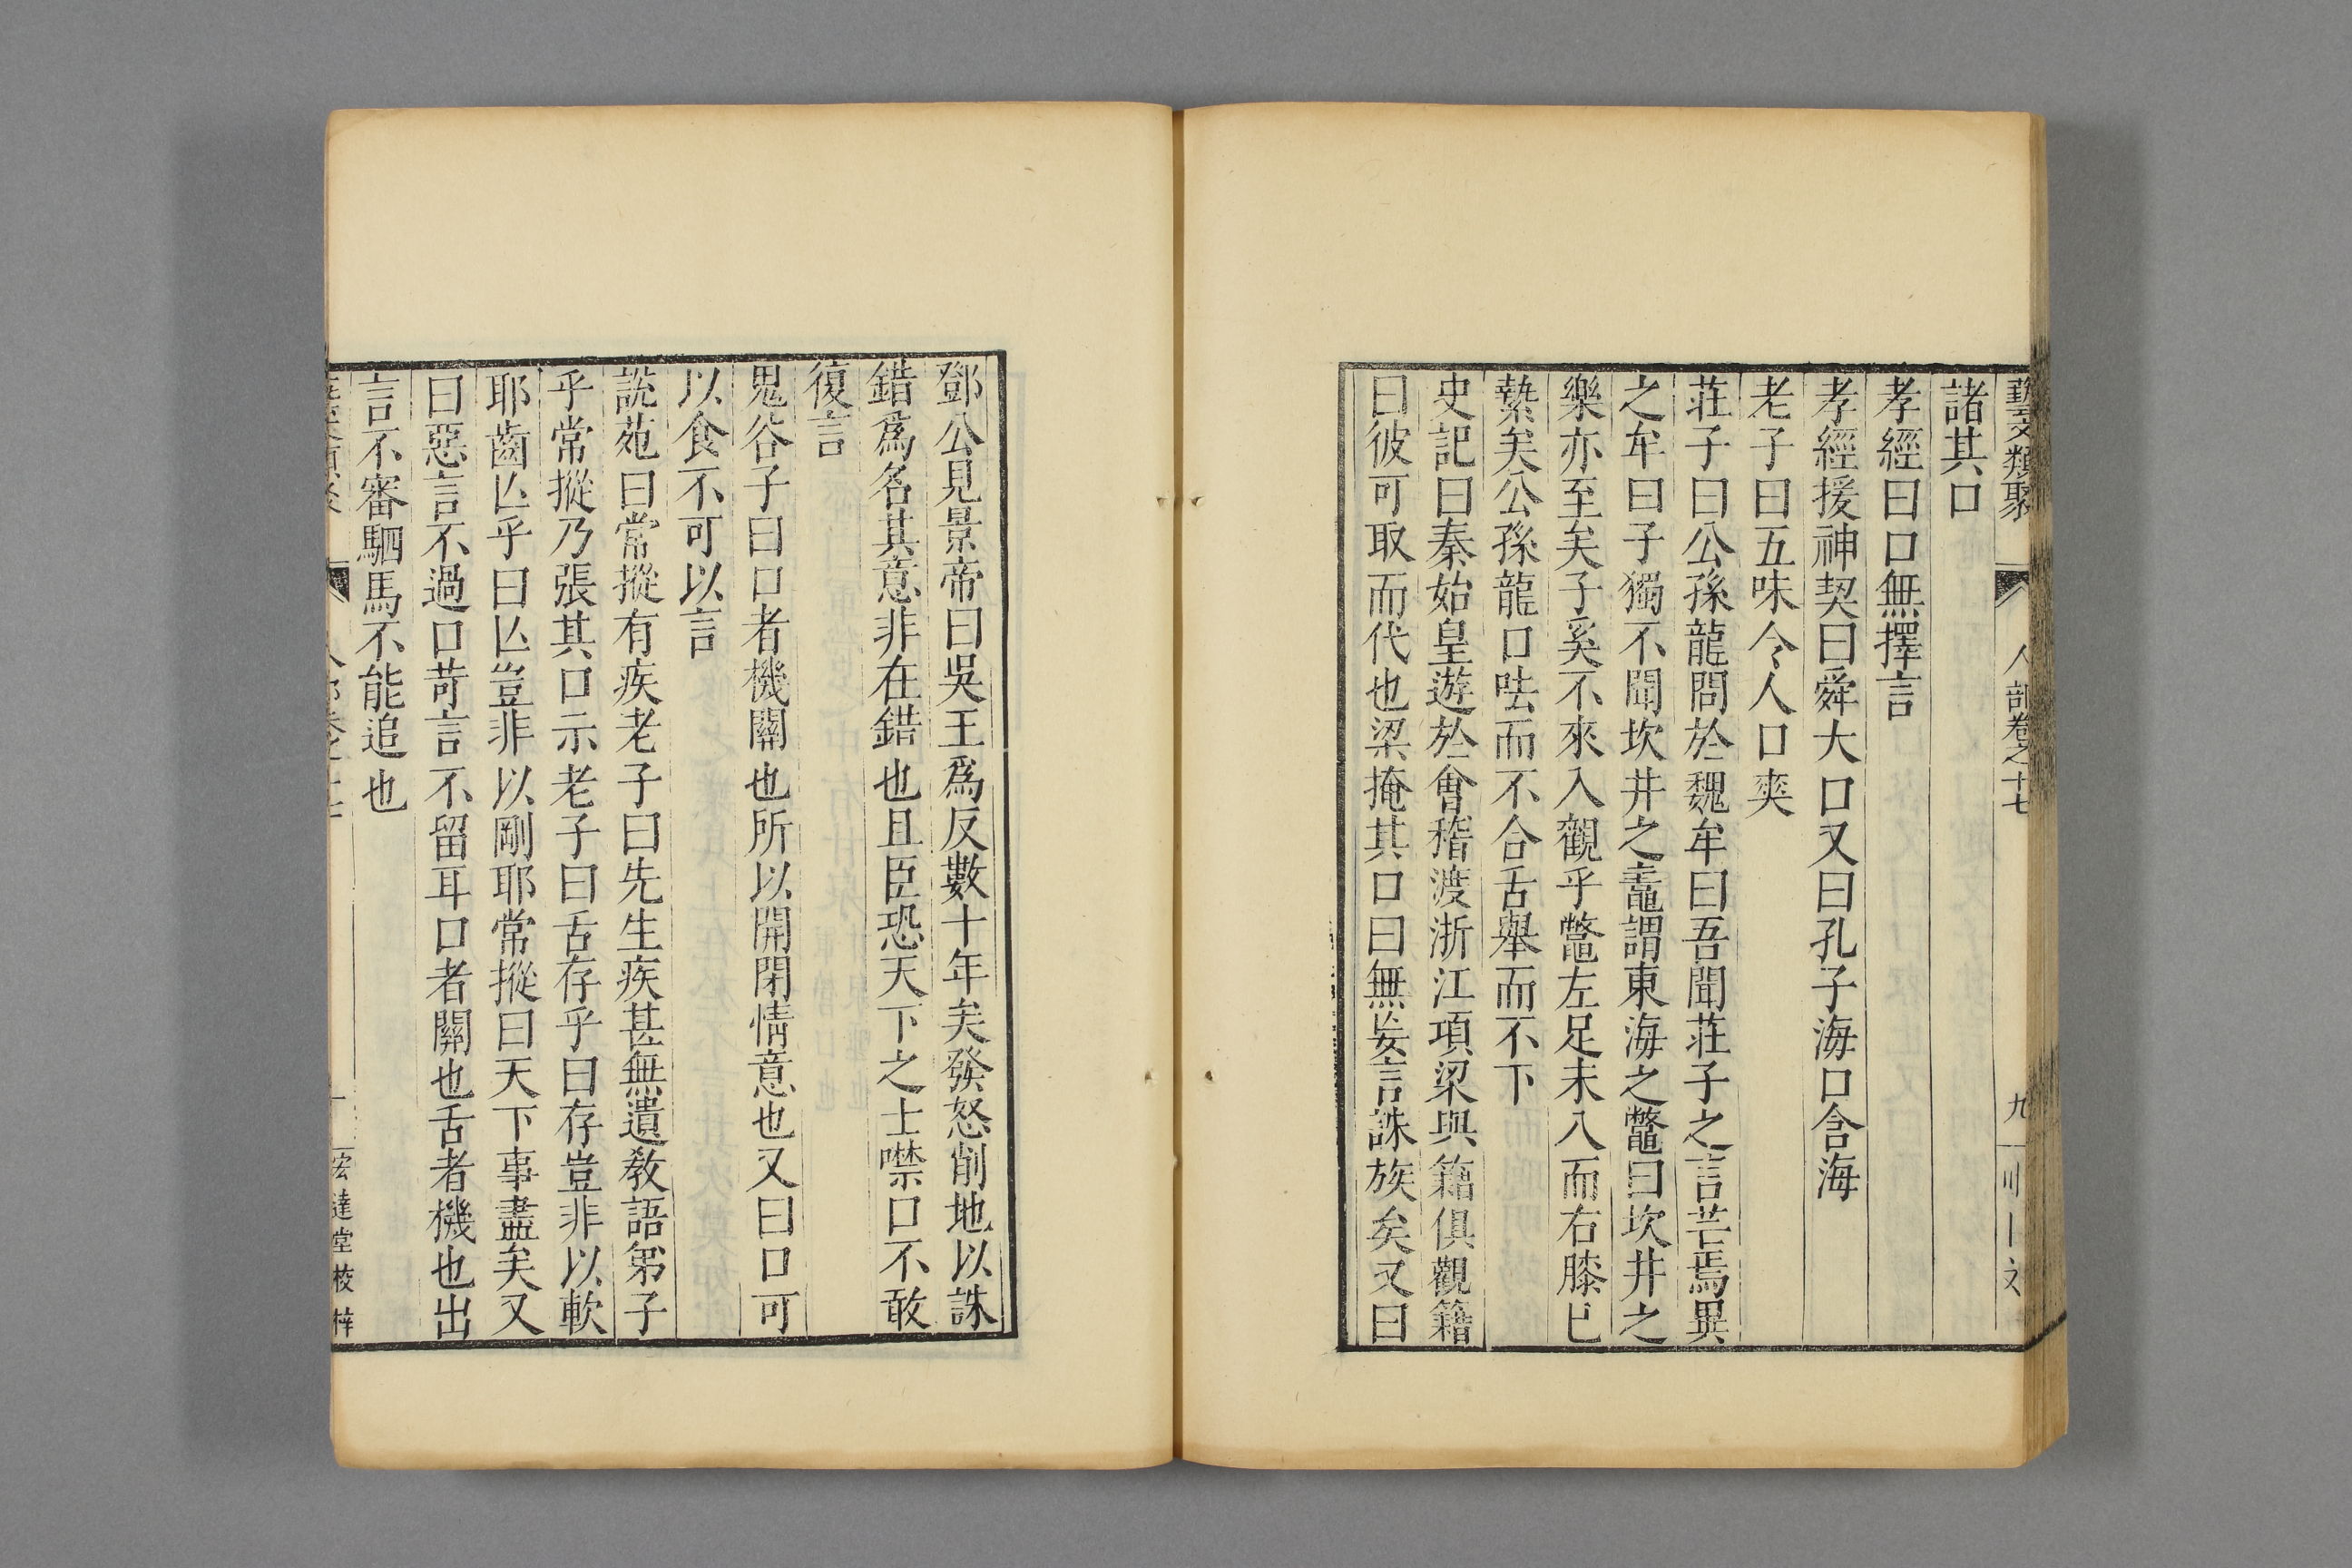 藝文類聚 人部卷之十七 九
諸其口
孝經曰口無擇言
孝經援神契曰舜大口又曰孔子海口含海
老子曰五味令人口爽
莊子曰公孫龍問於魏牟曰吾聞莊子之言芒焉異
之牟曰子獨不聞坎井之鼃謂東海之鼈曰坎井之
樂亦至矣子奚不來入觀乎鼈左足未入而右膝已
縶矣公孫龍口呿而不合舌舉而不下
史記曰秦始皇遊於會稽渡浙江項梁與籍俱觀籍
曰彼可取而代也梁掩其口曰無妄言誅族矣又曰
鄧公見景帝曰吳王為反數十年矣發怒削地以誅
錯為名其意非在錯也且臣恐天下之士噤口不敢
復言
鬼谷子曰口者機關也所以開閉情意也又曰口可
以食不可以言
說苑曰常摐有疾老子曰先生疾甚無遺教語弟子
乎常摐乃張其口示老子曰舌存乎曰存豈非以軟
耶齒亾乎曰亾豈非以剛耶常摐曰天下事盡矣又
曰惡言不過口苛言不留耳口者關也舌者機也出
言不審駟馬不能追也
宏達堂校梓